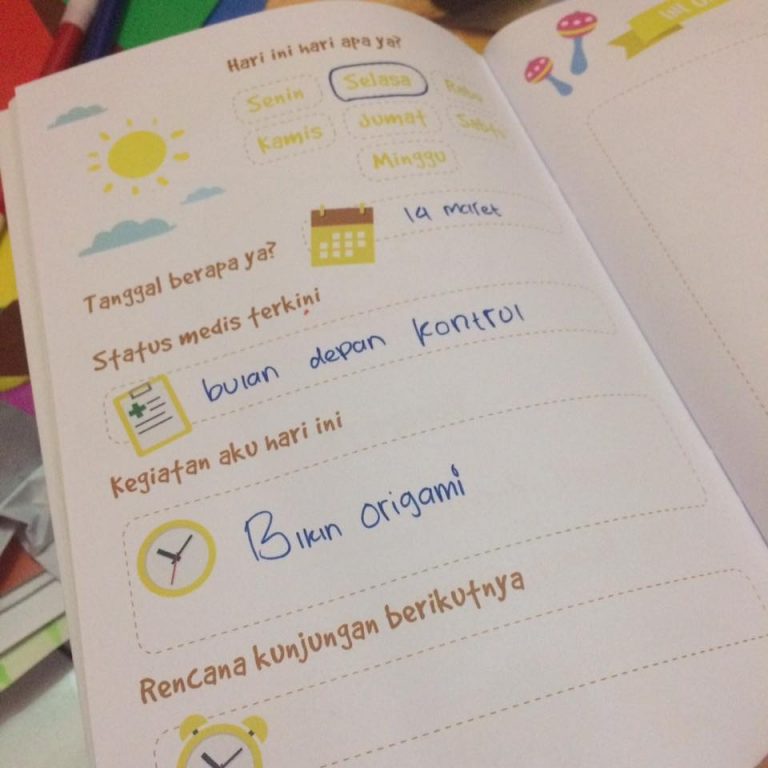 Hari ini hari apa ya?
Senin Selasa Rabu
Kamis Jumat Sabtu
Minggu
Tanggal berapa ya? 14 maret
Status medis terkini
bulan depan kontrol
Kegiatan aku hari ini
Bikin origami
Rencana kunjungan berikutnya